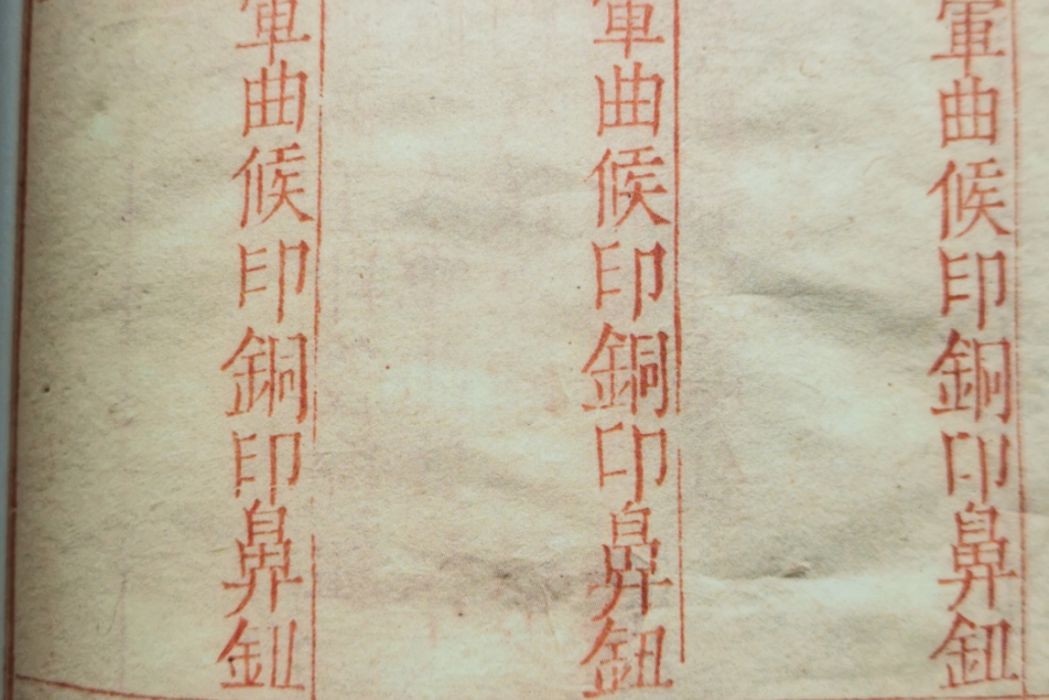 軍曲候印銅印鼻鈕
軍曲候印銅印鼻鈕
軍曲候印銅印鼻鈕